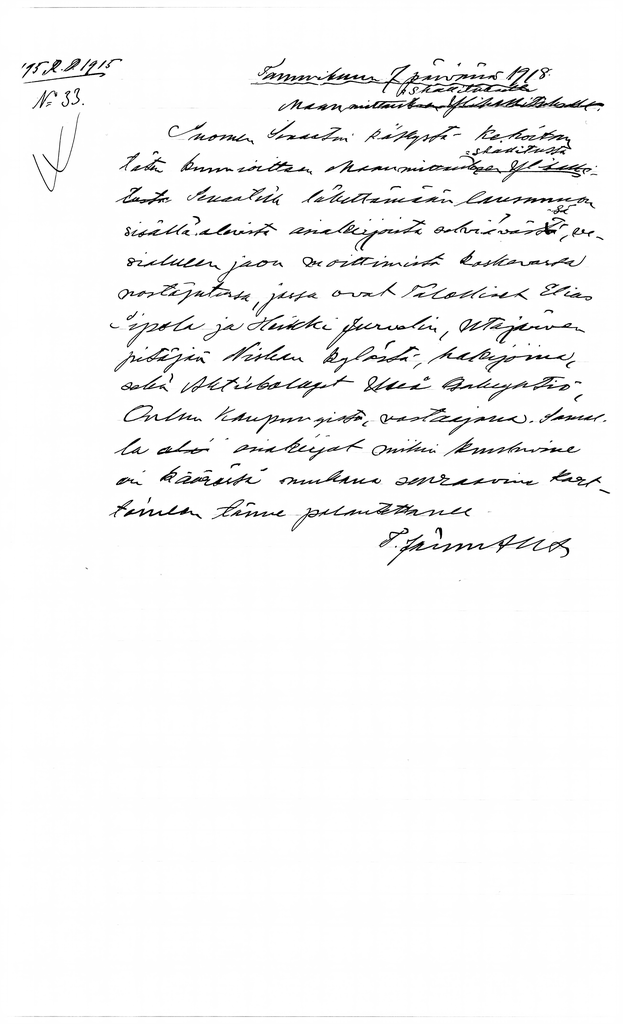 75 R.D. 1915
No 33.
Tammikuun 7 päivänä 1918.
Maanmittaushallitukselle
Ylihallitukselle.
Suomen Senaatin käskystä kehoitan
hallitusta
täten kunnioittaen Maanmittauksen Ylihalli-
tusta Senaatille lähettämään lausunnon
sisällä olevista asiakirjoista selviävässä, ve-
sialueen jaon moittimista koskevassa
nostojutussa, jossa ovat Talolliset Elias
Sipola ja Heikki Jurvelin, Utajärven
pitäjän Niskan kylästä, hakijoina,
sekä Aktiebolaget Uleå Osakeyhtiö,
Oulun Kaupungista, vastaajana. Samal-
la asiakirjat mikin kuuluvine
on kääröstä mukana seuraavine kart-
toineen tänne palautettanee.